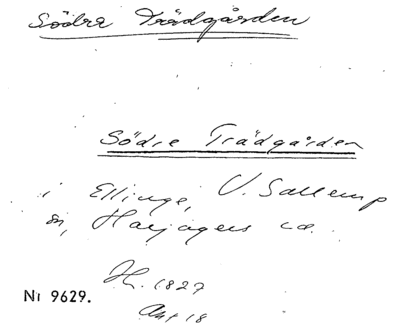 Södra Trädgården
Södre Trädgården
i Ellinge, V. Sallerup
sn, Harjagers
H. 1827
Akt 18
Nr 9629.